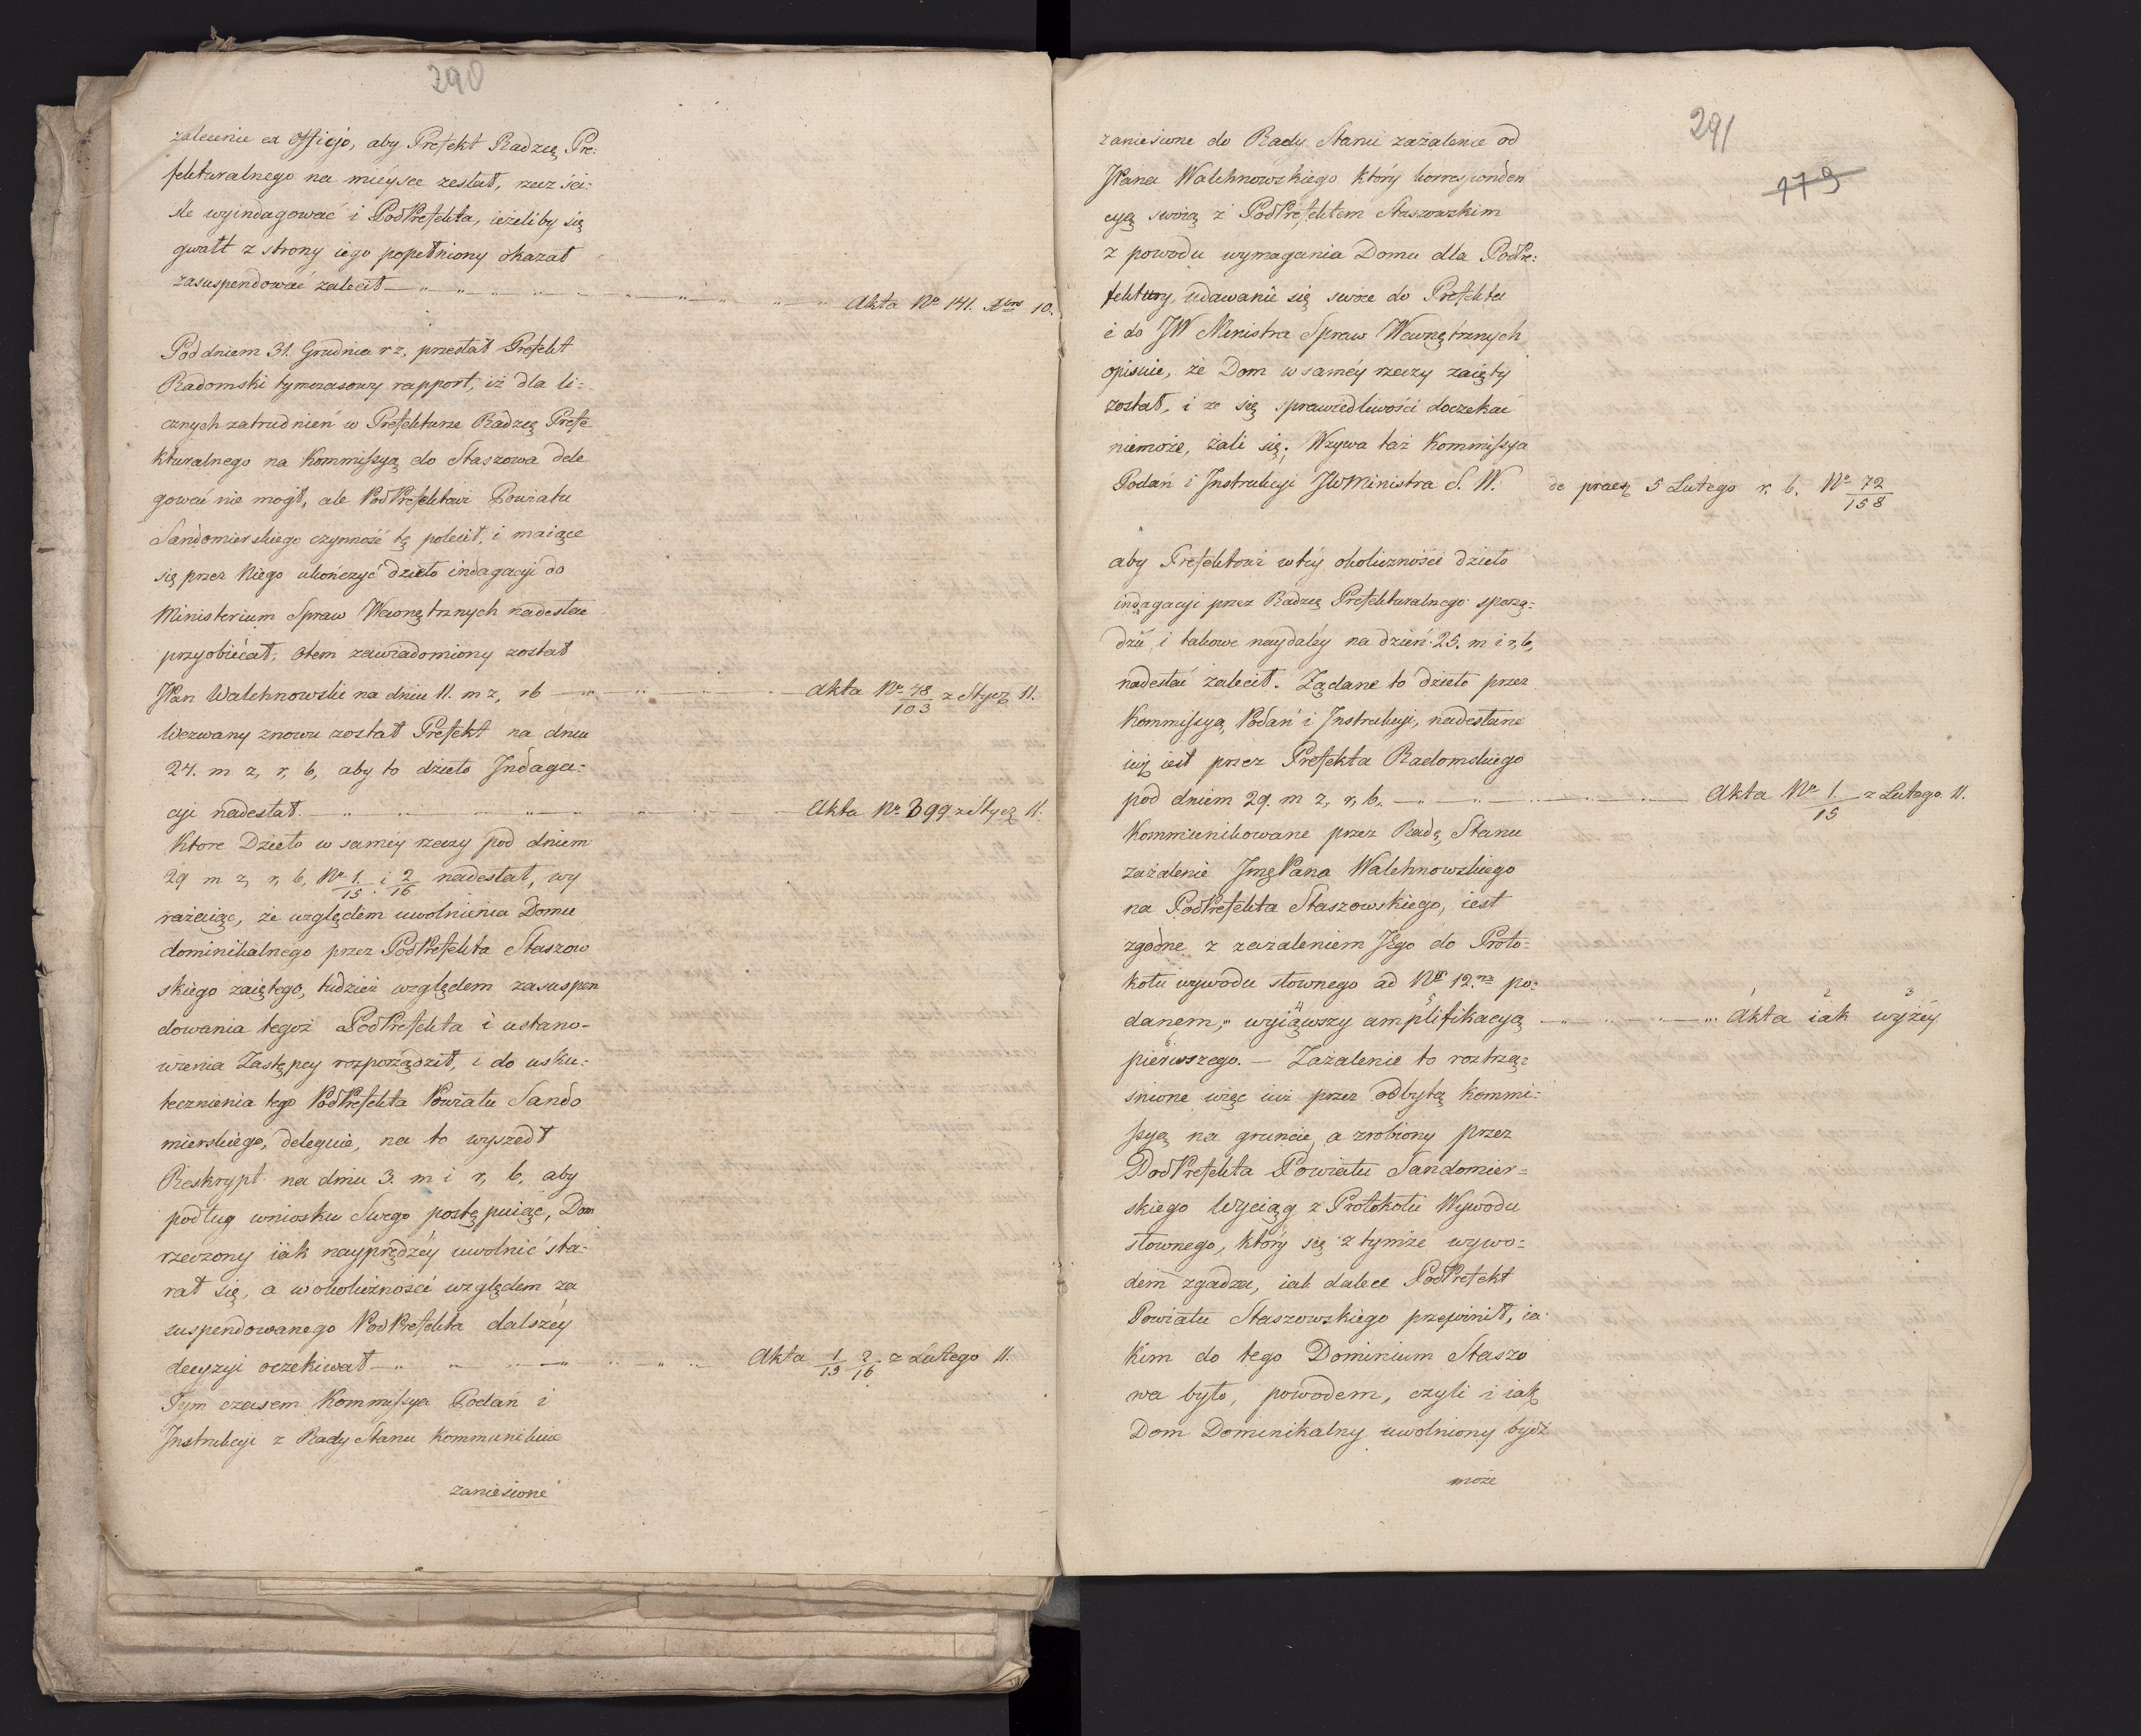 290
zalecenie ex Officjo, aby Prefekt Radzcę Pre:
fekturalnego na mieysce zesłał, rzecz ści:
śle wyindagować i PodPrefekta, ieżeliby się
gwałt z strony iego popełniony okazał
zasuspendować zalecił — Akta No 141. Xbra 10.
Pod dniem 31. Grudnia r z, przesłał Prefekt
Radomski tymczasowy rapport, iż dla li:
cznych zatrudnień w Prefekturze Radzcę Prefe
kturalnego na Kommissyą do Staszowa dele
gować nie mógł, ale PodPrefektowi Powiatu
Sandomierskiego czynność tę polecił, i maiące
się przez Niego ukończyć dzieło indagacyi do
Ministerium Spraw Wewnętrznych nadesłać
przyobiecał; Otem zawiadomiony został
JPan Walchnowski na dniu 11. m z, rb — Akta No 48/103 z Stycz 11.
Wezwany znowu został Prefekt na dniu
24. m z, r, b, aby to dzieło Indaga:
cyi nadesłał. — Akta No 399 z Stycz 11.
Które Dzieło w saméy rzeczy pod dniem
29 m z, r, b, No 1/15 i 2/16 nadesłał, wy
rażaiąc, że względem uwolnienia Domu
dominikalnego przez PodPrefekta Staszow
skiego zaiętego, tudzież względem zasuspen
dowania tegoż PodPrefekta i ustano-
wienia Zastępcy rozporządził, i do usku:
tecznienia tego PodPrefekta Powiatu Sando
mierskiego, deleguie, na to wyszedł
Reskrypt na dniu 3. m i r, b, aby
podług wniosku Swego postępuiąc, Dom
rzeczony iak nayprędzéy uwolnić sta:
rał się, a w okoliczności względem za
suspendowanego PodPrefekta dalszéy
decyzyi oczekiwał — Akta 1/15 2/16 z Lutego 11.
Tym czasem Kommissya Podań i
Instrukcyi z Rady Stanu kommunikuie
zaniesione
291
179
zaniesione do Rady Stanu zażalenie od
JPana Walchnowskiego który korresponden
cyą swoią z PodPrefektem Staszowskim
z powodu wymagania Domu dla PodPre:
fektury, udawanie się swoie do Prefekta
i do JW Ministra Spraw Wewnętrznych
opisuie, że Dom w saméy rzeczy zaięty
został, i że się sprawiedliwości doczekać
niemoże, żali się; Wzywa taż Kommissya
Podań i Instrukcyi JWMinistra S. W. de praes 5 Lutego r. b. No 72/158
aby Prefektowi w téy okoliczności dzieło
indagacyi przez Radzcę Prefekturalnego sporzą:
dzić, i takowe naydaléy na dzień 25. m i r, b,
nadesłać zalecił. Żądane to dzieło przez
Kommissyą Podań i Instrukcyi, nadesłane
iuż iest przez Prefekta Radomskiego
pod dniem 29. m z, r, b. — Akta No 1./15 z Lutego 11.
Kommunikowane przez Radę Stanu
zażalenie JmęPana Walchnowskiego
na PodPrefekta Staszowskiego, iest
zgodne z zażaleniem JEgo do Proto-
kołu wywodu słownego ad No 12.m po:
danem, wyiąwszy amplifikacyą — Akta iak wyżéy
pierwszego. — Zażalenie to roztrzą:
śnione więc iuż przez odbytą kommi:
ssyą na gruncie, a zrobiony przez
PodPrefekta Powiatu Sandomier-
skiego Wyciąg z Protokołu Wywodu
słownego, który się z tymże wywo:
dem zgadza, iak dalece PodPrefekt
Powiatu Staszowskiego przewinił, ia
kim do tego Dominium Staszo
wa było, powodem, czyli i iak
Dom Dominikalny uwolniony bydź
może